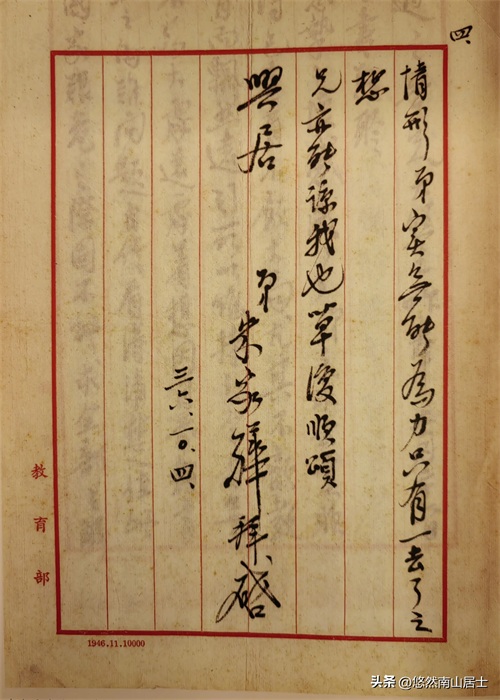 四、
情形弟实无能为力只有一去了之
想
兄亦能谅我也草复顺颂
興居
弟朱家驊拜啓
三六、一〇、四、
教育部
1946.11.10000
头条 @悠然南山居士